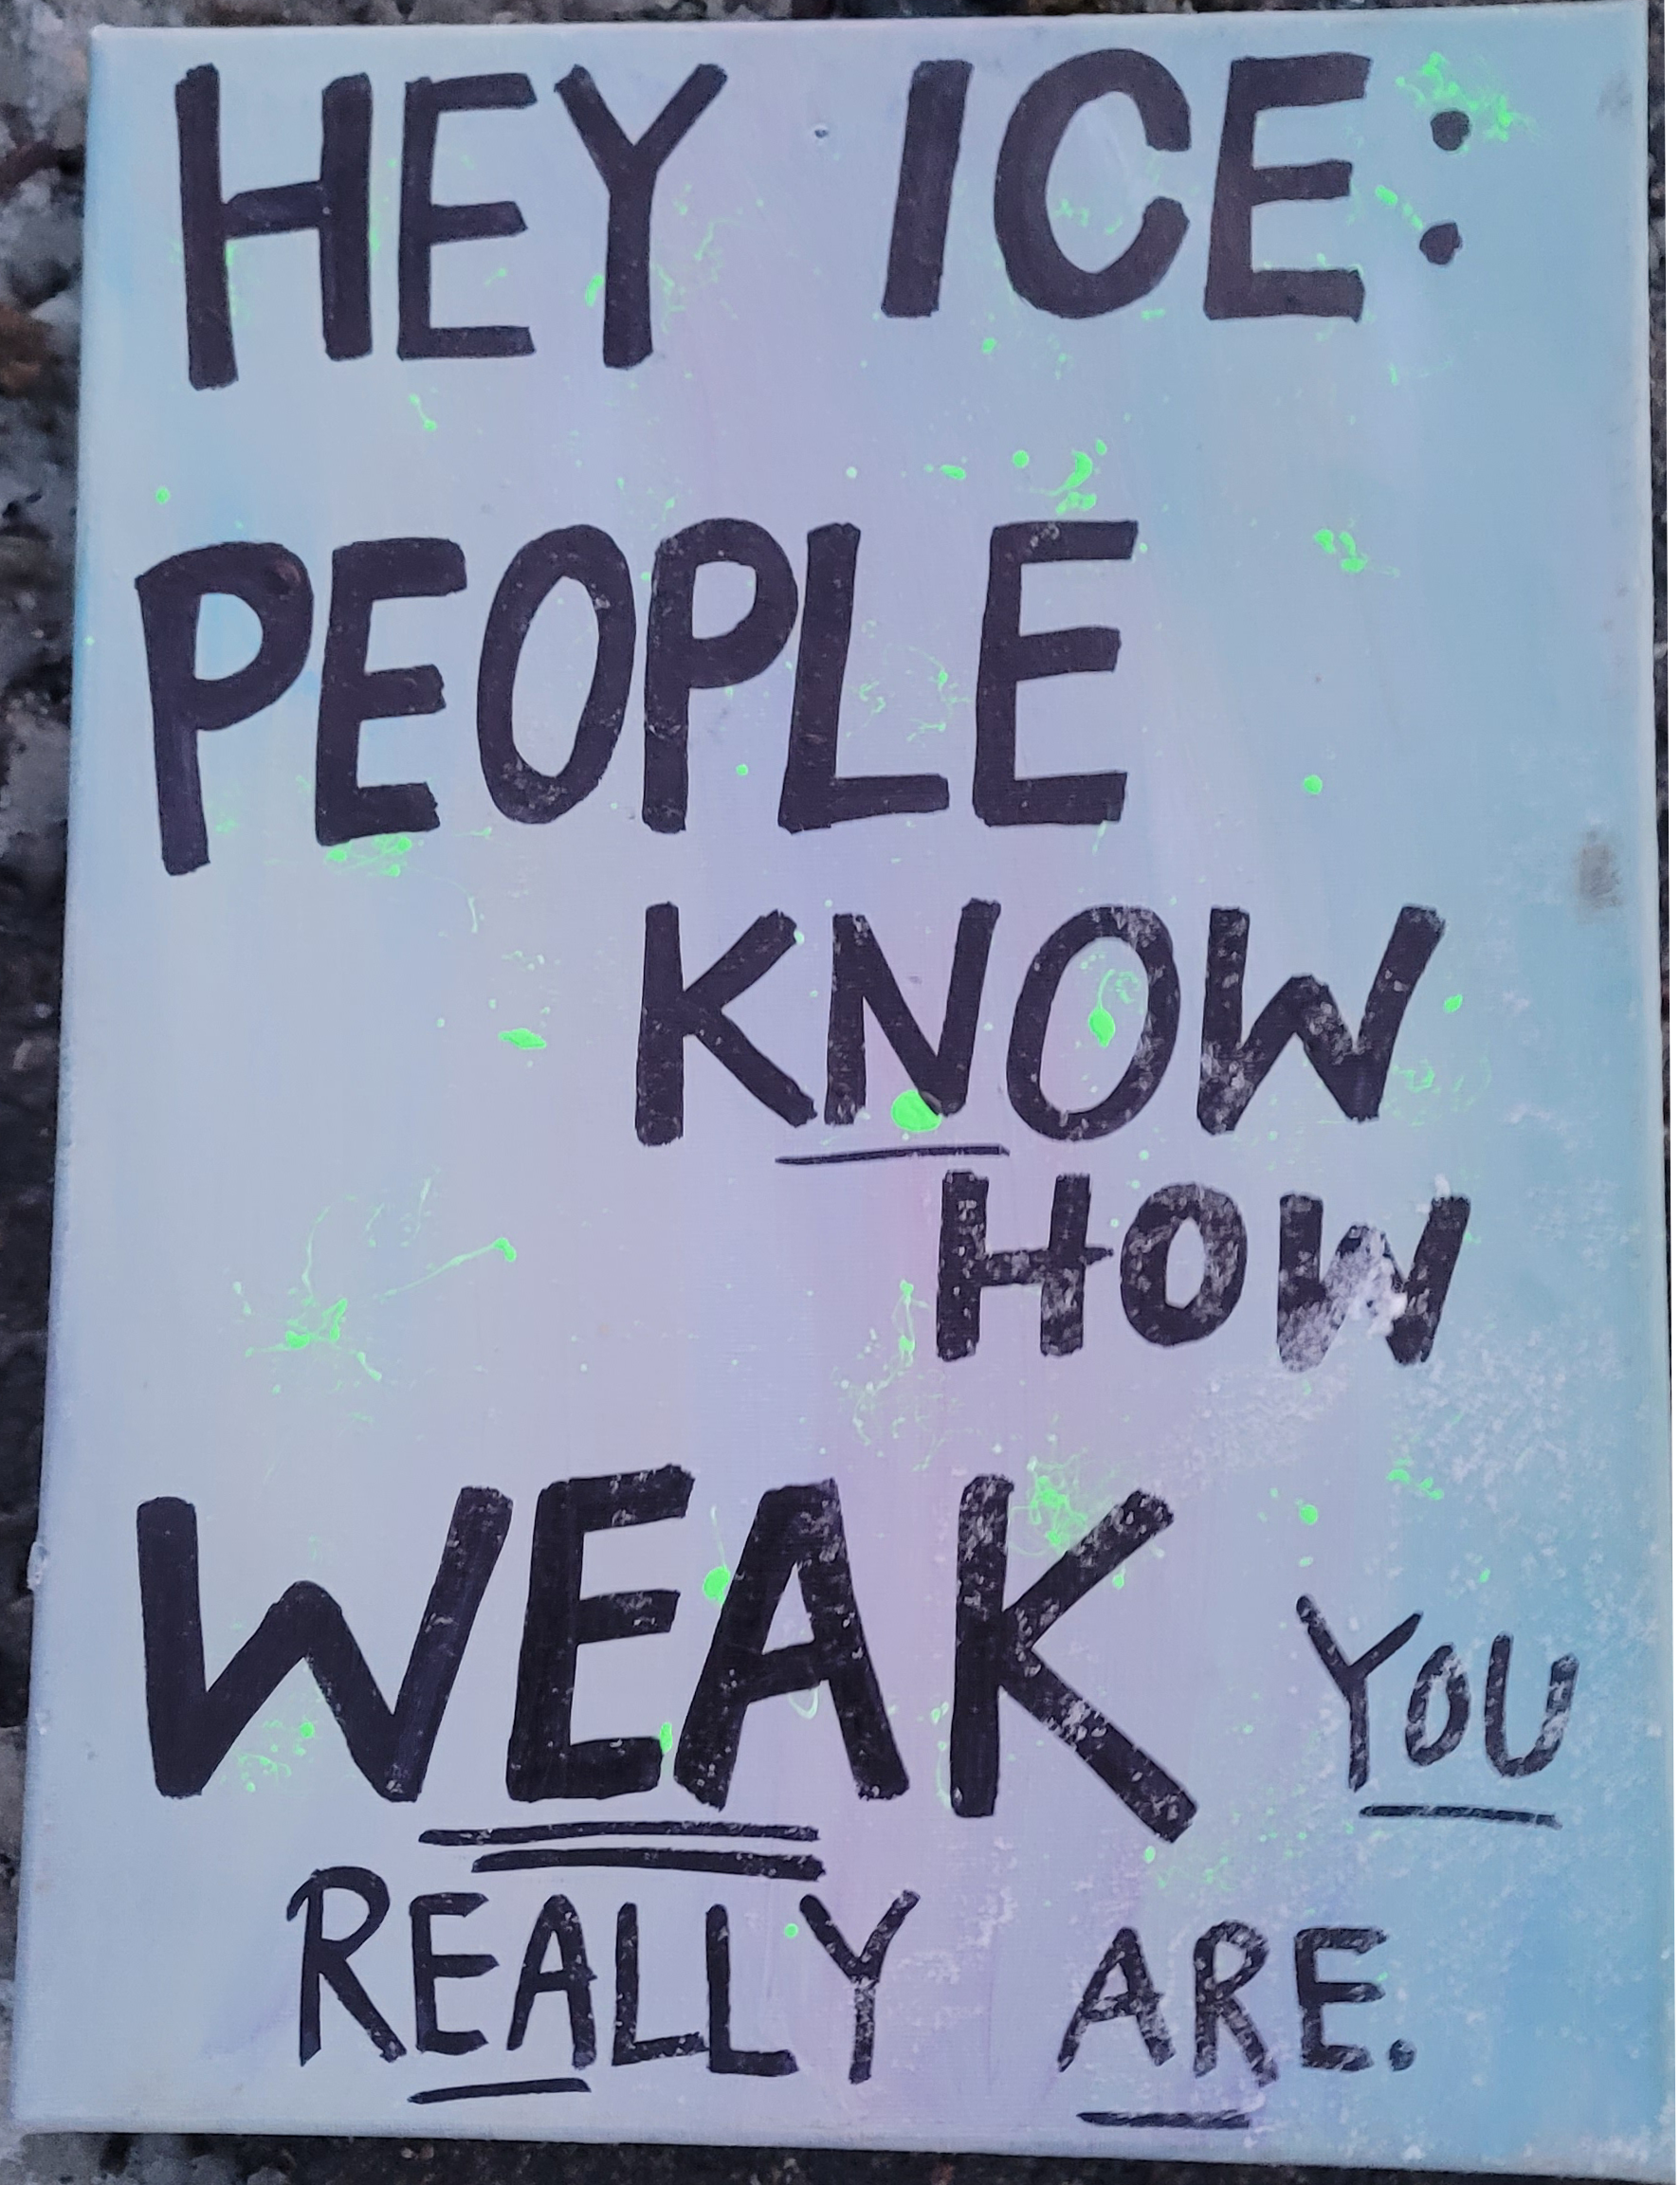 HEY ICE:
PEOPLE
KNOW
HOW
WEAK YOU
REALLY ARE.